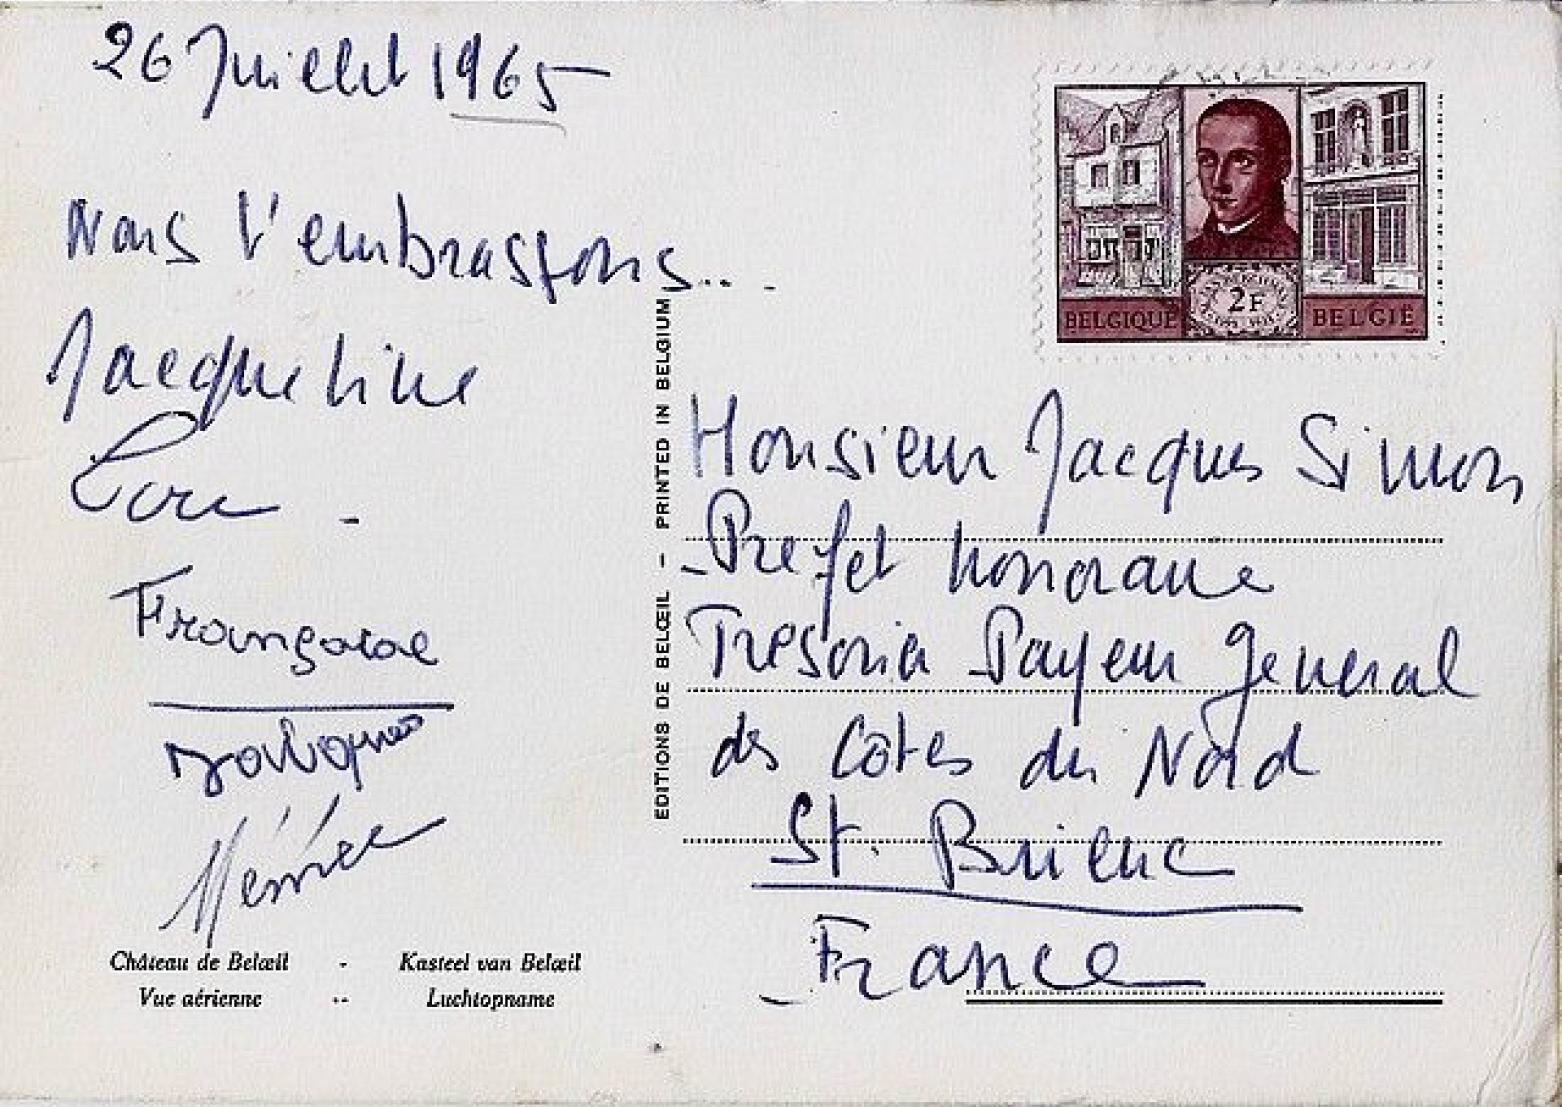 26 Juillet 1965
Nous t'embrassons...
Jacqueline
Françoise
BELGIQUE 2F BELGIË
Monsieur Jacques Simon
Prefet honoraire
Tresorier Payeur General
des Côtes du Nord
St. Brieuc
France
EDITIONS DE BELŒIL — PRINTED IN BELGIUM
Château de Belœil - Kasteel van Belœil
Vue aérienne -- Luchtopname